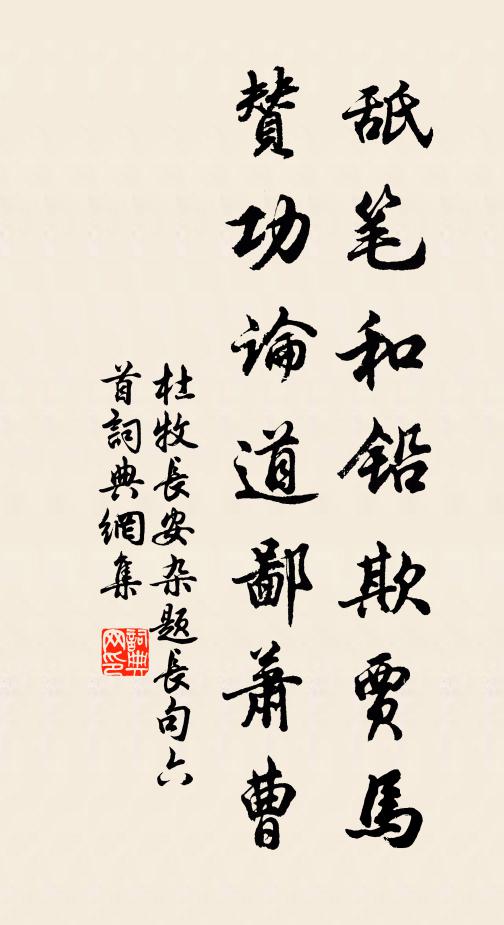 舐笔和铅欺贾馬
贊功論道鄙蕭曹
杜牧長安杂題長句六
首詞典網集
詞典网印